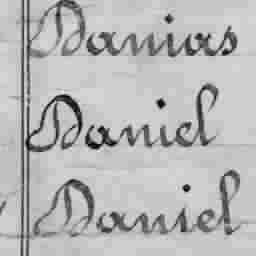 Danias
Daniel
Daniel